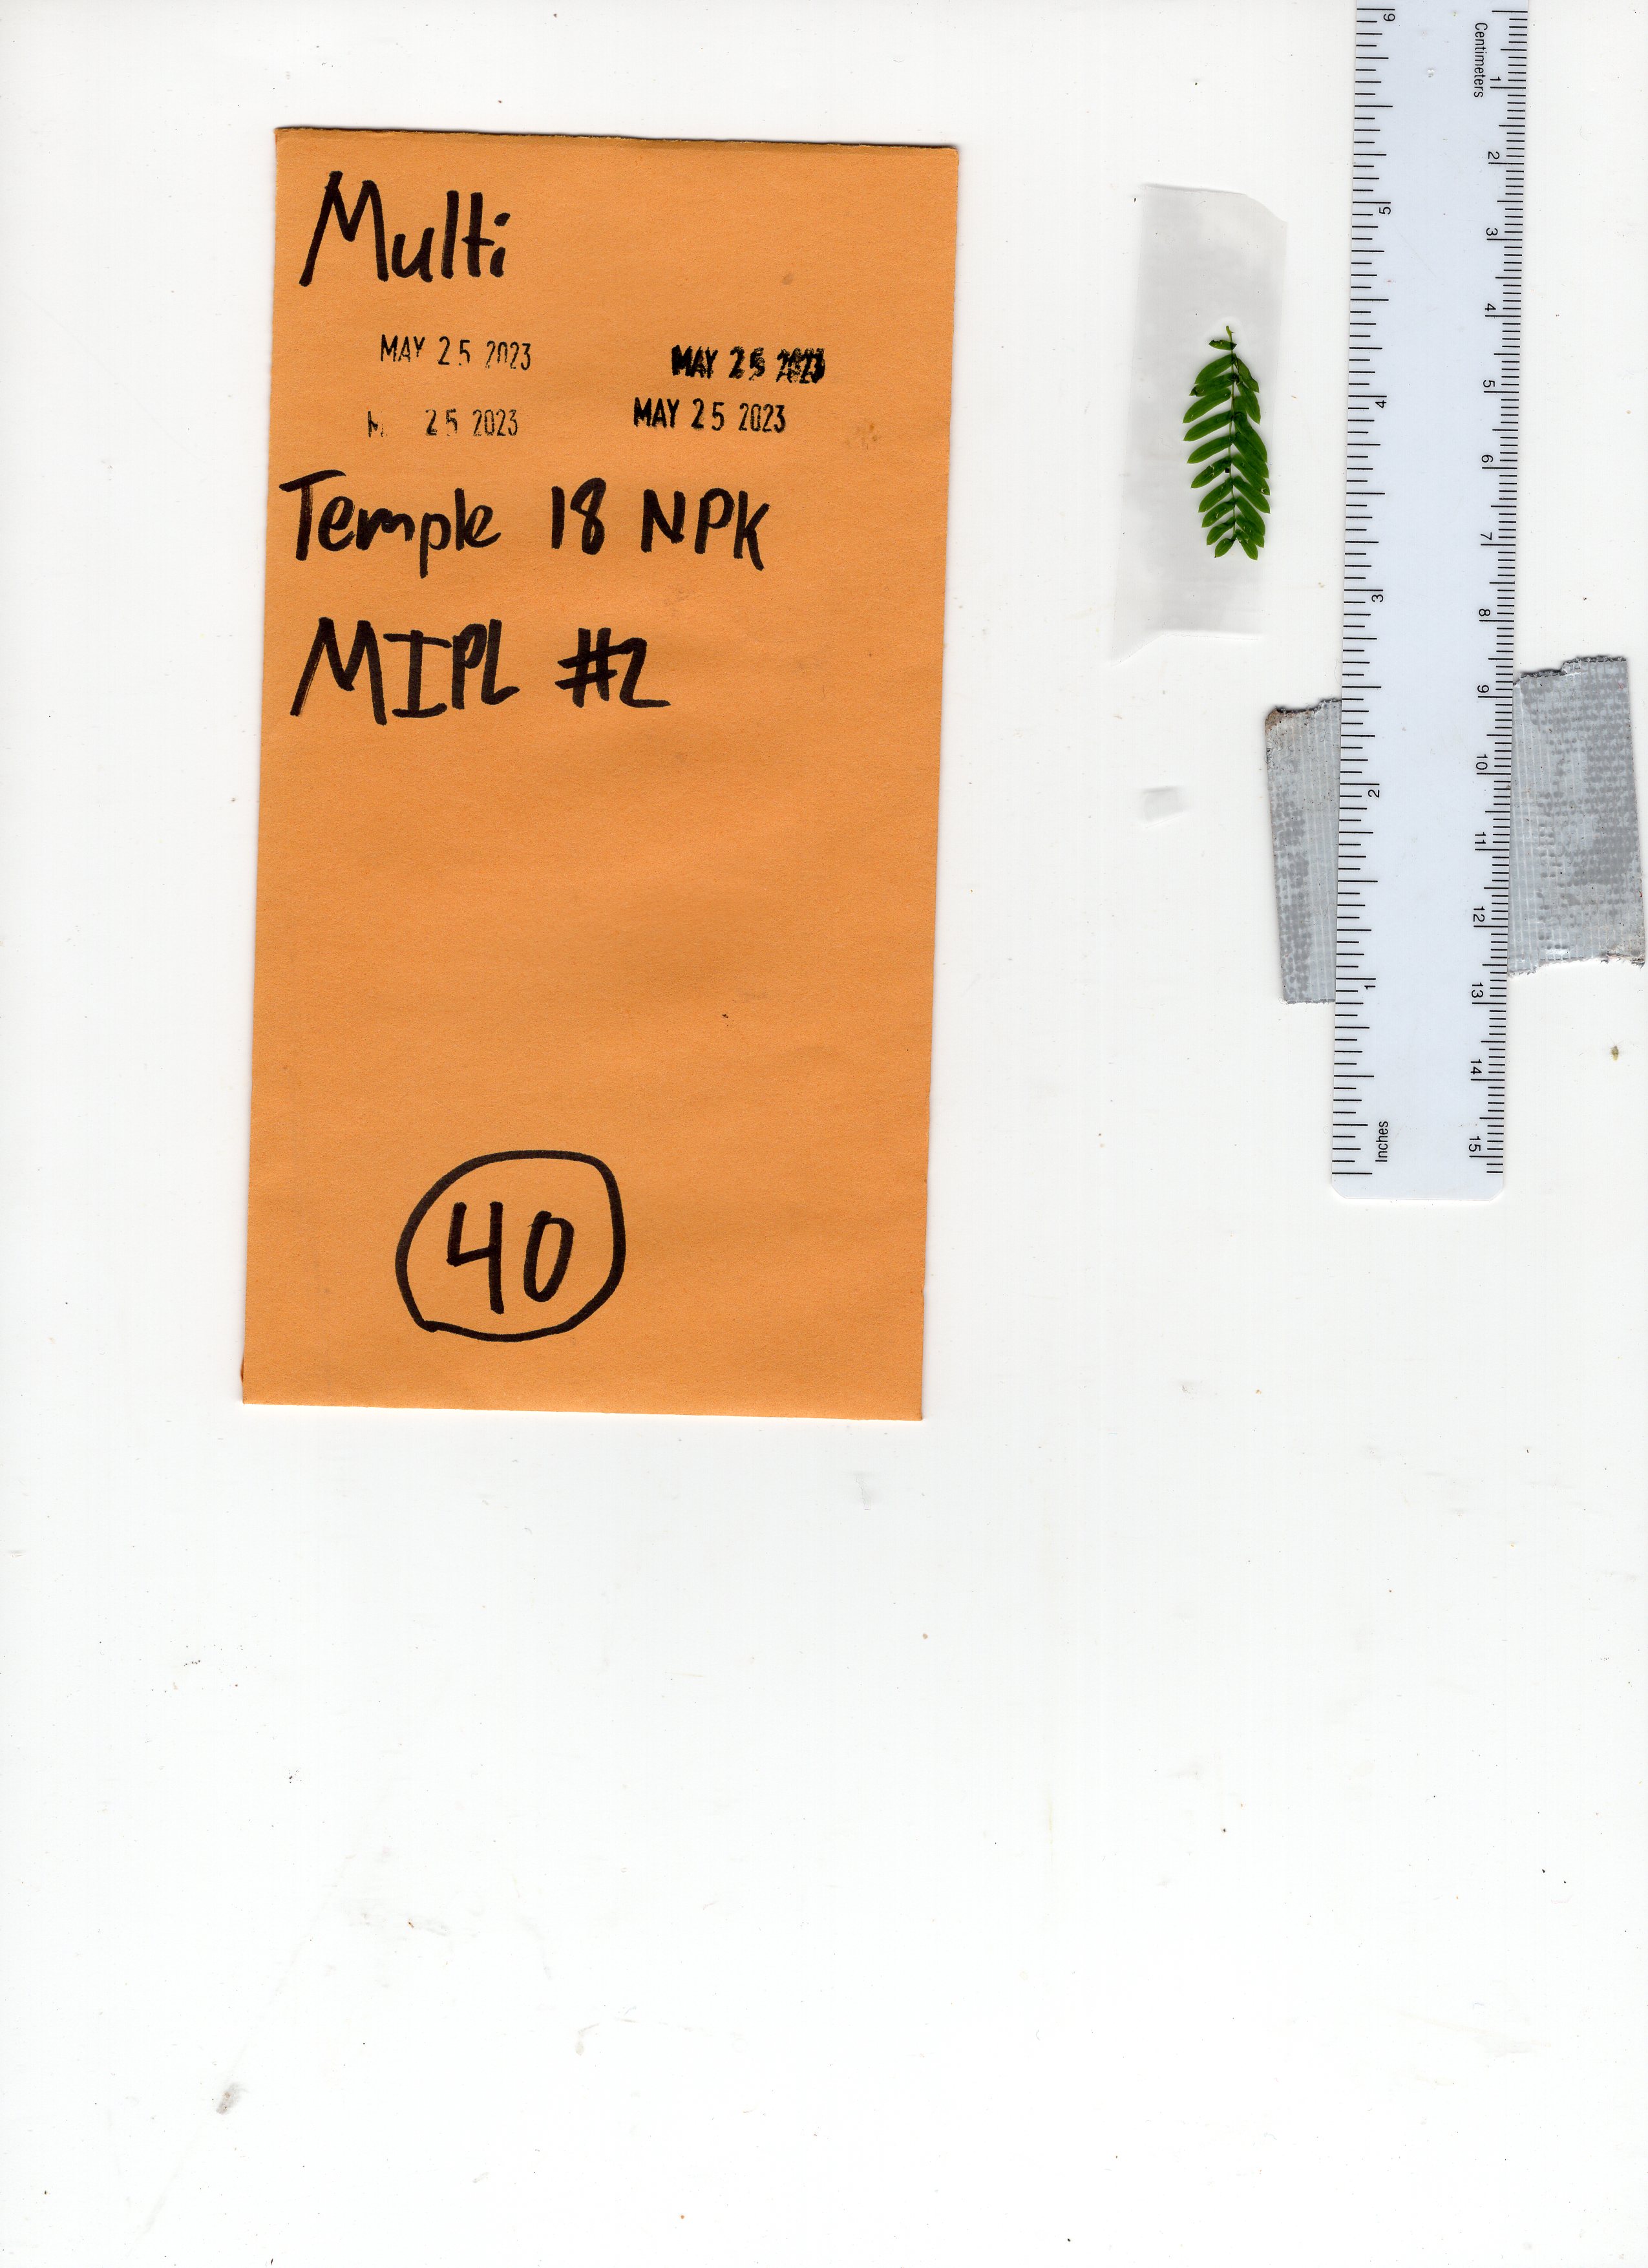 Multi
MAY 25 2023 MAY 25 2023
25 2023 MAY 25 2023
Temple 18 NPK
MIPL #2
40
Centimeters
1
2
3
4
5
6
7
8
9
10
11
12
13
14
15
6
5
4
3
2
1
Inches